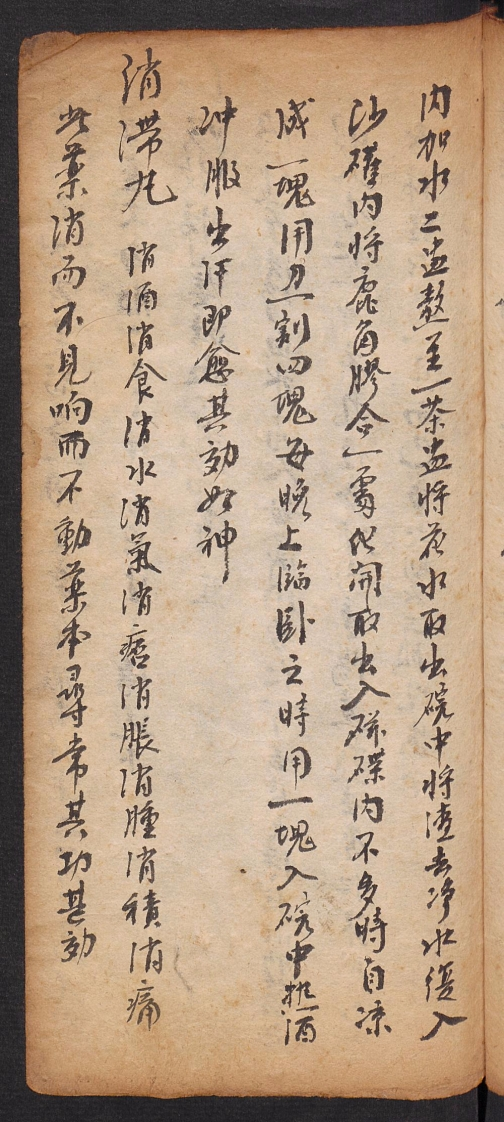 内加水二盅熬至一茶盅将花水取出碗中将渣去净水復入
沙礶内将鹿角膠合一處化開取出入磁碟内不多時自凍
成一塊用刀割四塊每晚上臨卧之時用一塊入碗中热酒
冲服出汗即愈其効如神
消滞丸 消酒消食消水消氣消痞消脹消腫消積消痛
此藥消而不見响而不動藥本尋常其功甚効